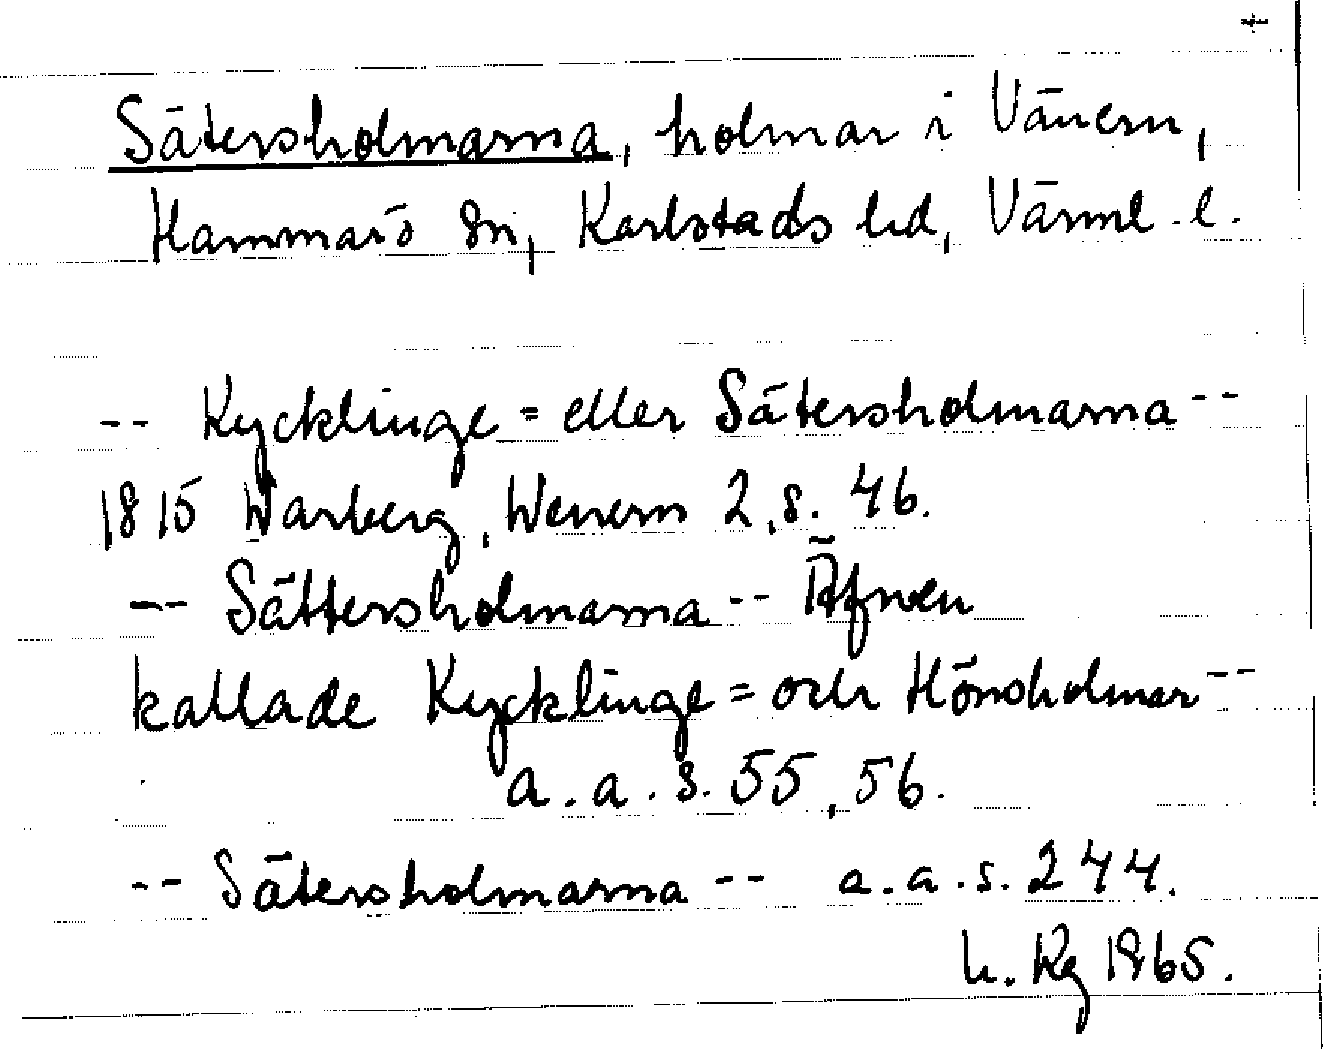 Sätersholmarna, holmar i Vänern,
Hammarö sn, Karlstads hd, Värml. l.
-- Kycklinge= eller Sätersholmarna --
1815 Warberg, Wenern 2, s. 46.
-- Sättersholmarna -- Äfwen
kallade Kycklinge= och Hönsholmar --
a. a. s. 55, 56.
-- Sätersholmarna -- a. a. s. 244.
h. Rg 1965.